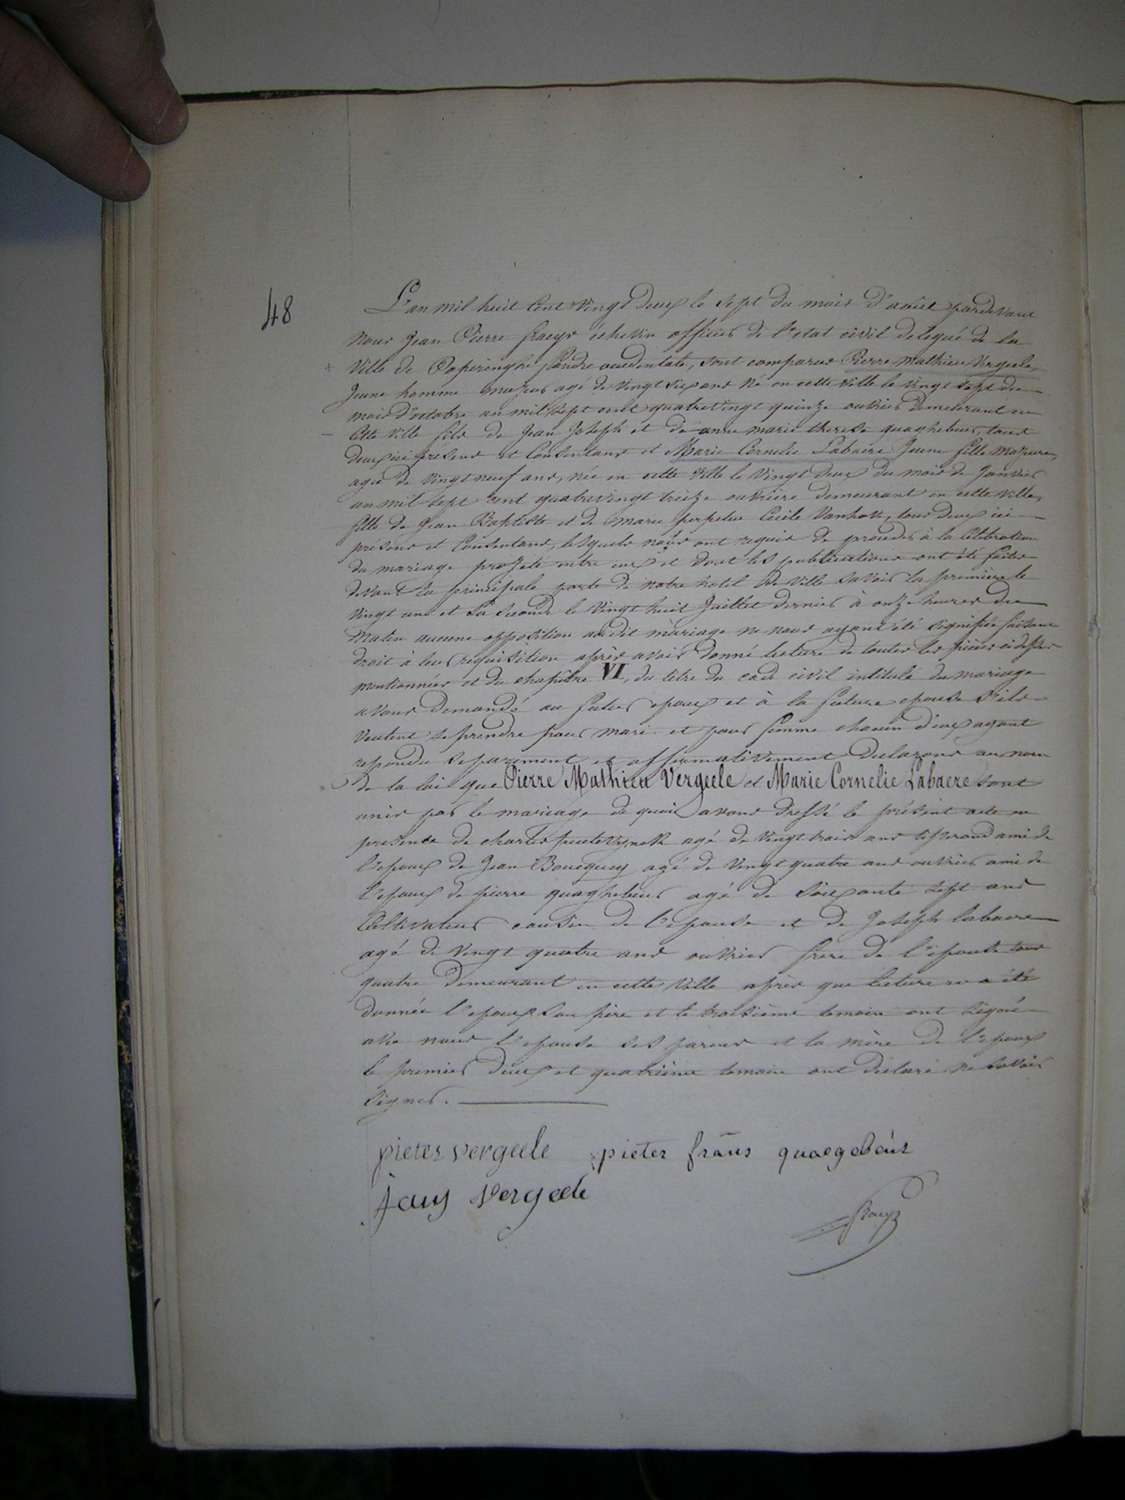 48
L'an mil huit cent vingt deux le sept du mois d'aout pardevant
nous Jean Pierre echevin officier de l'etat civil delegué de la
ville de Poperinghe flandre occidentale, sont comparus Pierre Mathieu Vergeele,
Jeune homme majeur agé de vingt six ans né en cette ville le vingt sept du
mois d'octobre an mil sept cent quatrevingt quinze ouvrier demeurant en
cette ville fils de Jean Joseph et de anne marie therese quaghebeur tous
deux ici present et consentans et Marie Cornelie Labaere Jeune fille majeure,
agée de vingt neuf ans, née en cette ville le vingt deux du mois de Janvier
an mil sept cent quatrevingt treize ouvrière demeurant en cette ville,
fille de Jean Baptiste et de Marie perpetue Cecile Vanhove, tous deux ici
présens et consentans, lesquels nous ont requis de proceder à la célébration
du mariage projeté entre eux et dont les publications ont été faites
devant la principale porte de notre hotel de ville savoir la première le
vingt un et la seconde le vingt huit Juillet dernier à onze heures du
matin aucune opposition au dit mariage ne nous ayant été signifiée faisant
droit à leur requisition après avoir donné lecture de toutes les pièces ci dessus
mentionnées et du chapitre VI, du titre du code civil intitulé du mariage
avons demandé au futur epoux et à la future epouse s'ils
veulent se prendre pour mari et pour femme chacun d'eux ayant
repondu separement et affirmativement declarons au nom
de la loi que Pierre Mathieu Vergeele et Marie Cornelie Labaere sont
unis par le mariage de quoi avons dressé le présent acte en
presence de charles agé de vingt trois ans tisserand ami de
l'epoux de Jean Boucquey agé de vingt quatre ans ouvrier ami de
l'epoux de pierre quaghebeur agé de soixante sept ans
cultivateur cousin de l'epouse et de Joseph labaere
agé de vingt quatre ans ouvrier frere de l'epouse tous
quatre demeurant en cette ville après que lecture en a été
donnée l'epoux son père et le troisième temoin ont signé
avec nous l'epouse ses parens et la mère de l'epoux
le premier deux et quatrième temoin ont declaré ne savoir
signer.
pieter vergeele pieter frans quaegebeur
vergeele